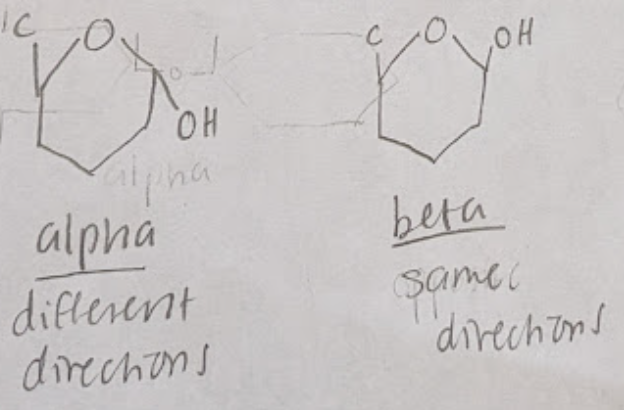 C O
OH
alpha
alpha
different
directions
C O OH
beta
same
directions